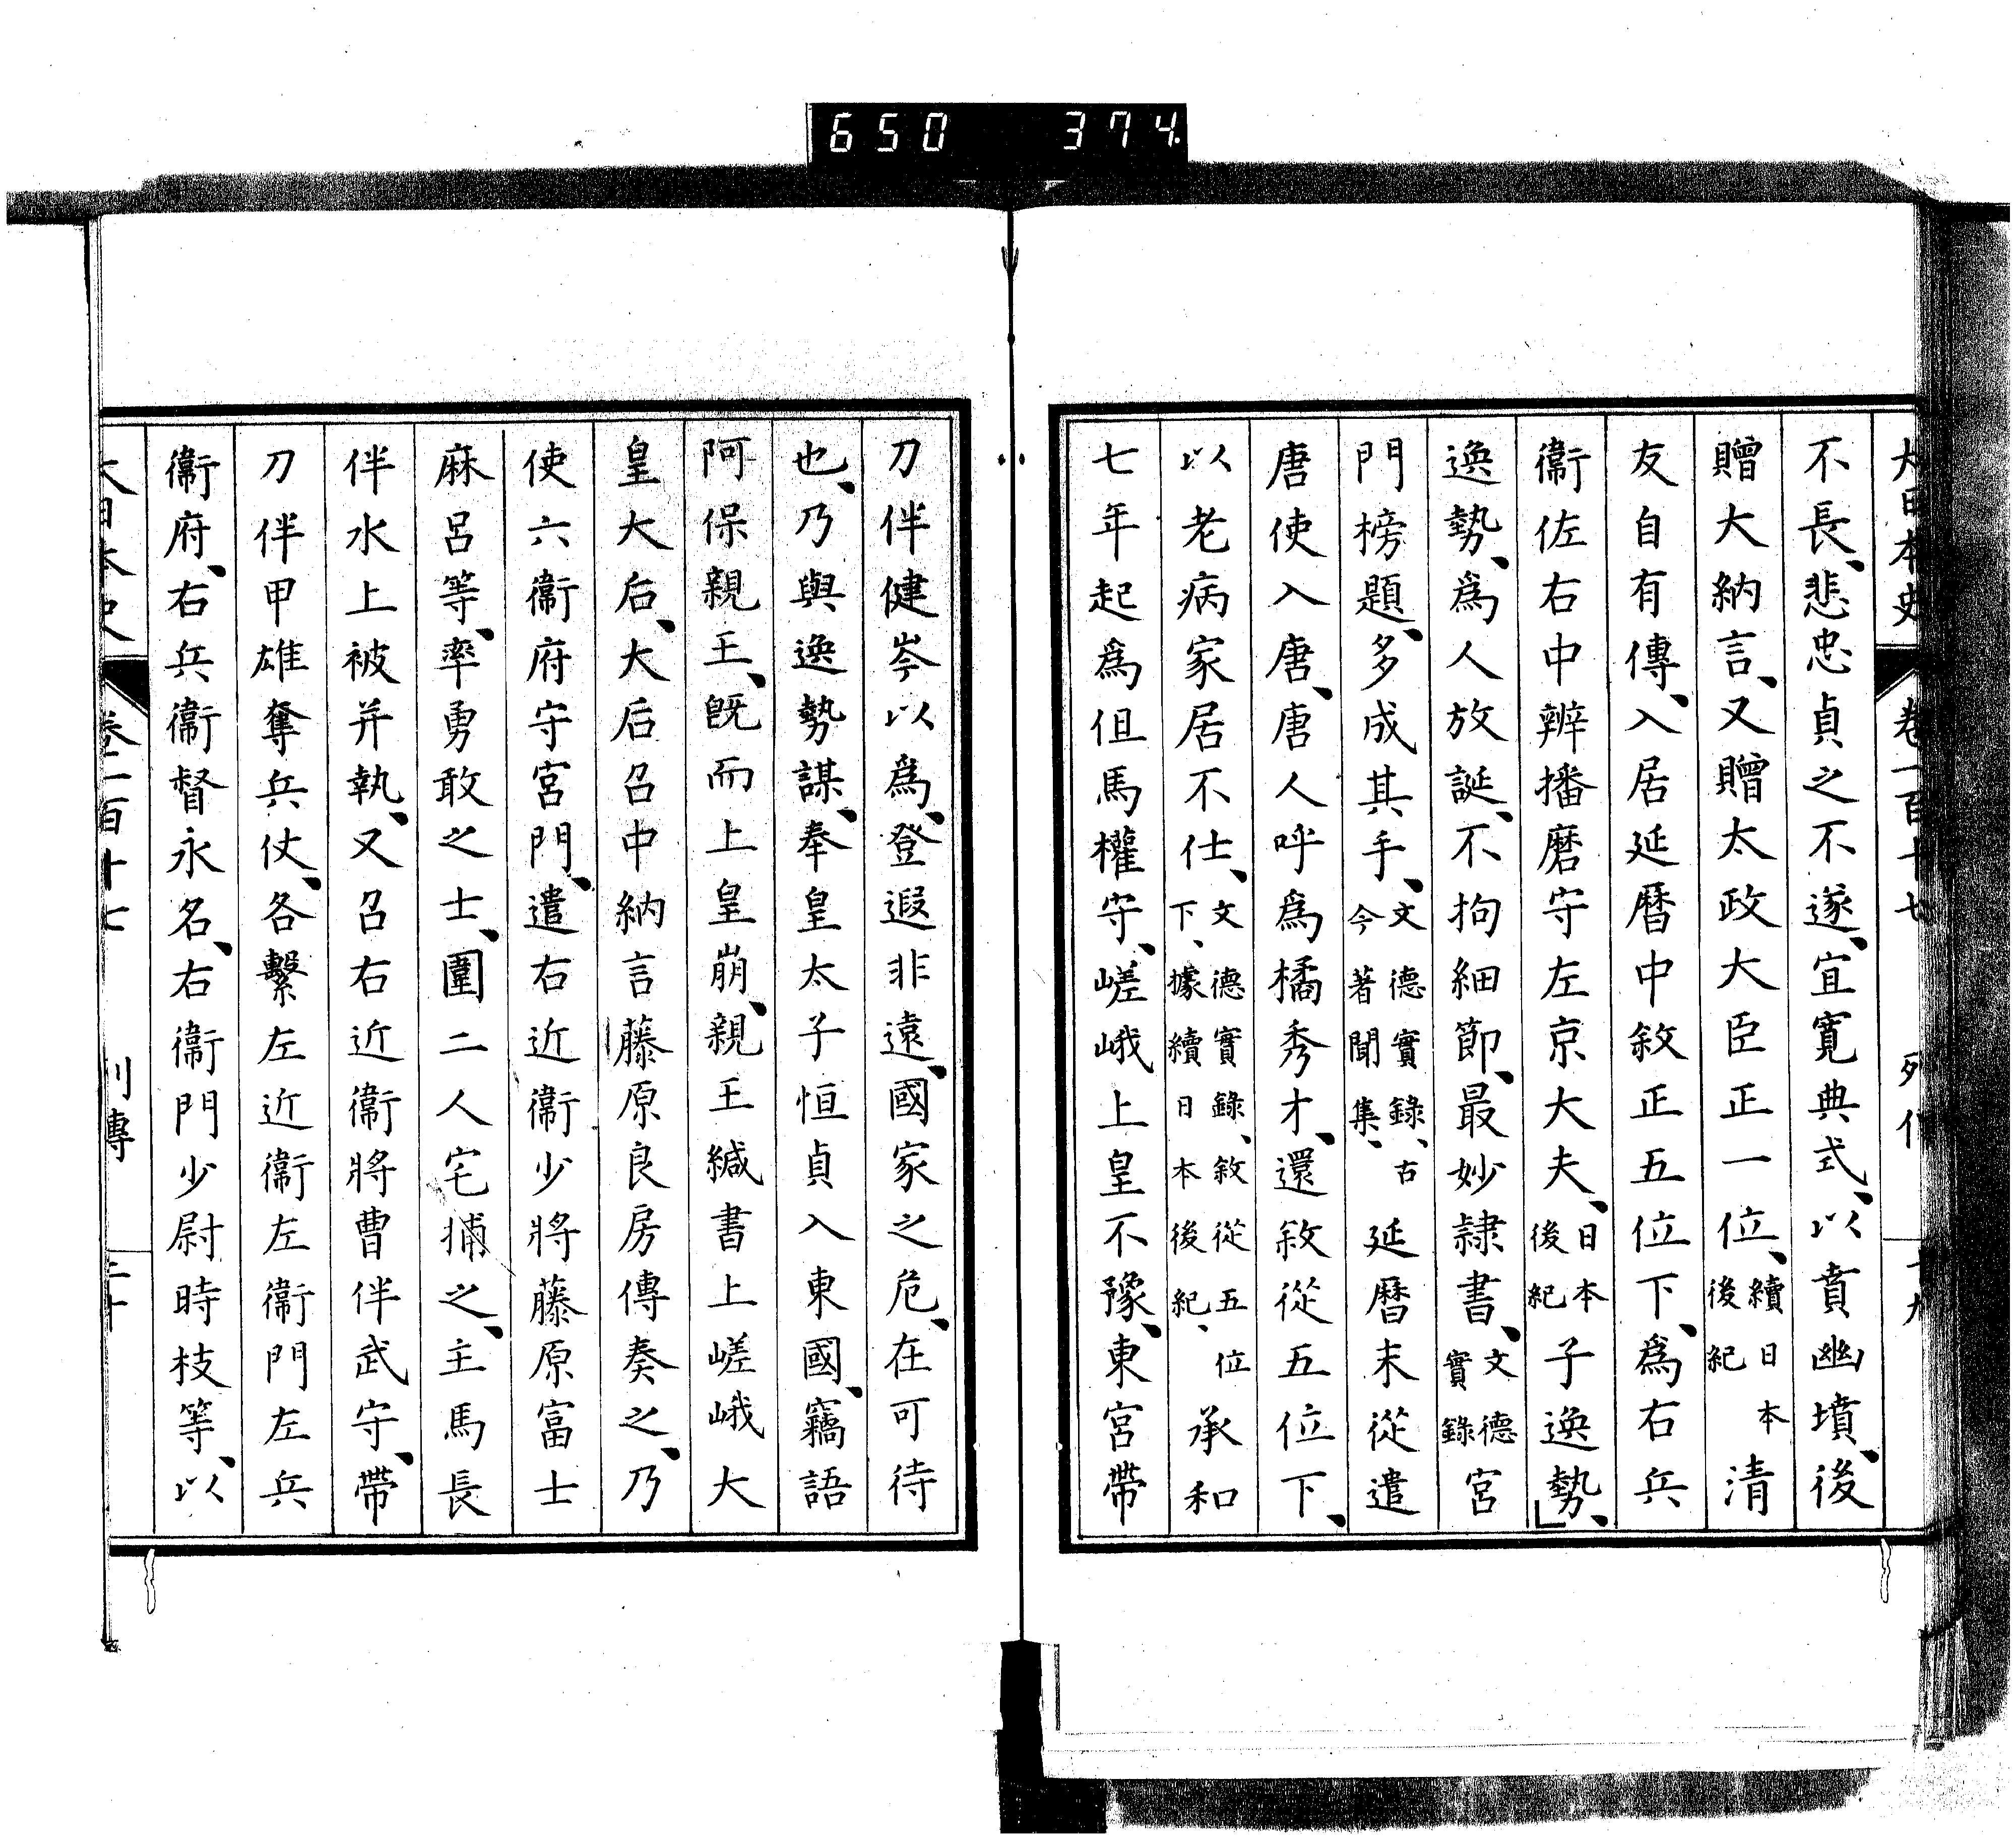 650 374
大日本史 卷一百十七 列傳 十九
不長、悲忠貞之不遂、宜寬典式、以賁幽墳、後
贈大納言、又贈太政大臣正一位、續日本後紀清
友自有傳、入居延曆中敘正五位下、爲右兵
衞佐右中辨播磨守左京大夫、日本後紀子逸勢、
逸勢、爲人放誕、不拘細節、最妙隷書、文德實錄宮
門榜題、多成其手、文德實錄、古今著聞集、延曆末從遣
唐使入唐、唐人呼爲橘秀才、還敘從五位下、
以老病家居不仕、文德實錄、敘從五位下、據續日本後紀、承和
七年起爲但馬權守、嵯峨上皇不豫、東宮帶
刀伴健岑以爲、登遐非遠、國家之危、在可待
也、乃與逸勢謀、奉皇太子恒貞入東國、竊語
阿保親王、既而上皇崩、親王緘書上嵯峨大
皇大后、大后召中納言藤原良房傳奏之、乃
使六衞府守宮門、遣右近衞少將藤原富士
麻呂等、率勇敢之士、圍二人宅捕之、主馬長
伴水上被并執、又召右近衞將曹伴武守、帶
刀伴甲雄奪兵仗、各繫左近衞左衞門左兵
衞府、右兵衞督永名、右衞門少尉時枝等、以
大日本史 卷一百十七 列傳 二十